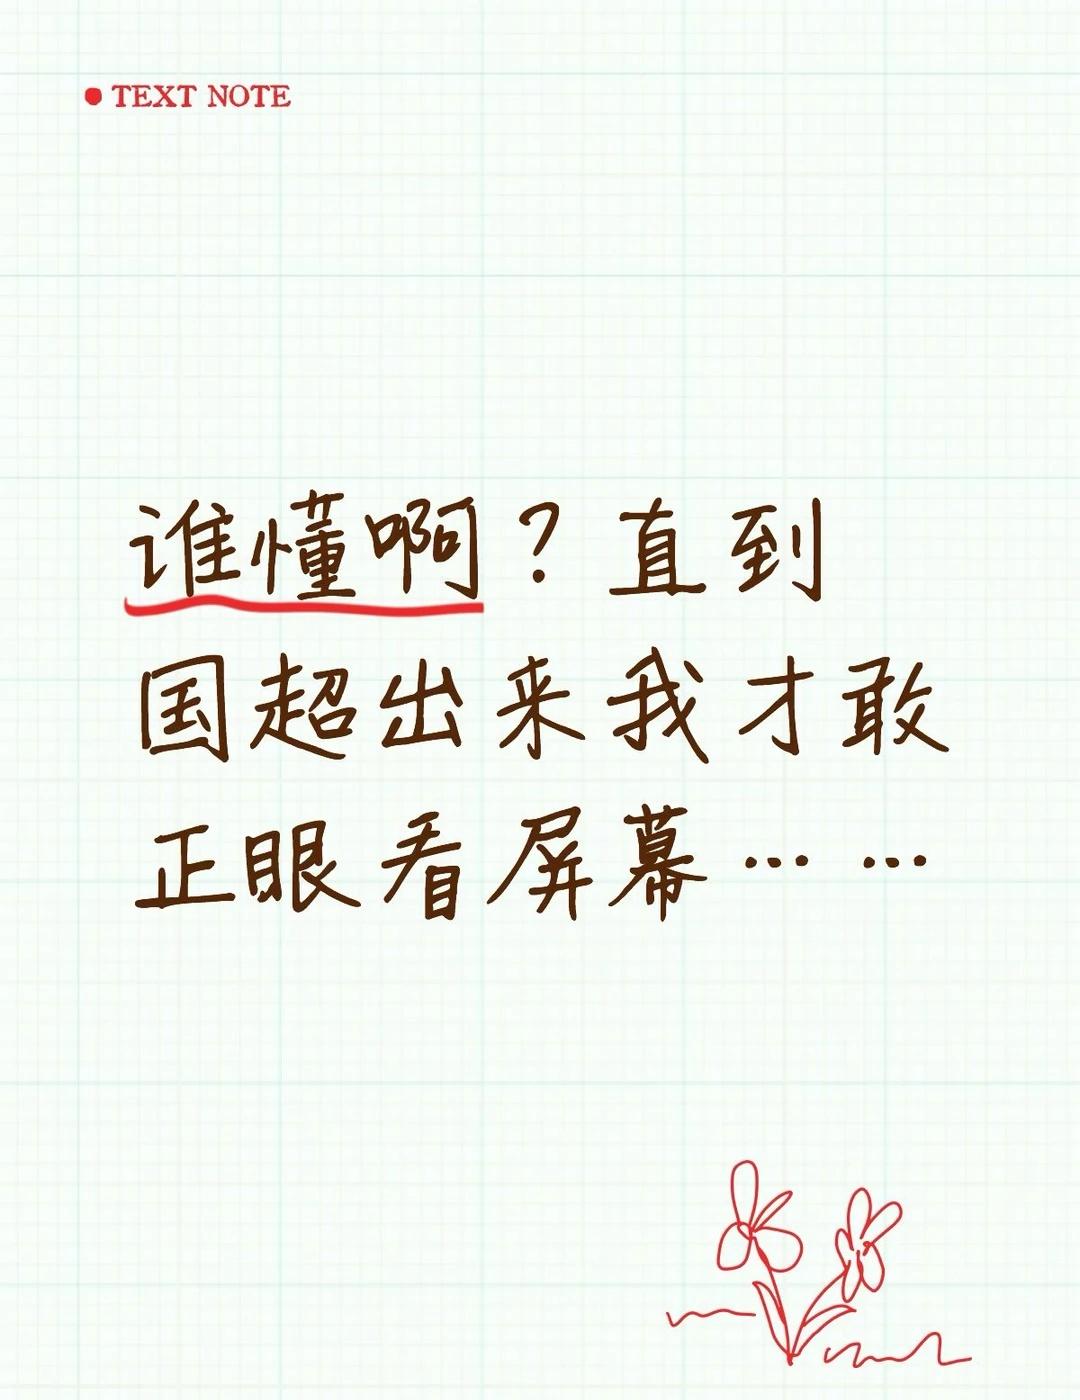 TEXT NOTE
谁懂啊？直到
国超出来我才敢
正眼看屏幕……